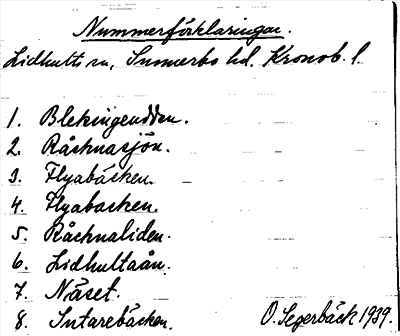 Nummerförklaringar.
Lidhults sn, Sunnerbo hd. Kronob. l.
1. Blekingeudden.
2. Råchnasjön.
3. Flyabäcken.
4. Flyabacken.
5. Råchnaliden.
6. Lidhultaån.
7. Näset.
8. Sutarebäcken. O. Segerbäck 1939.